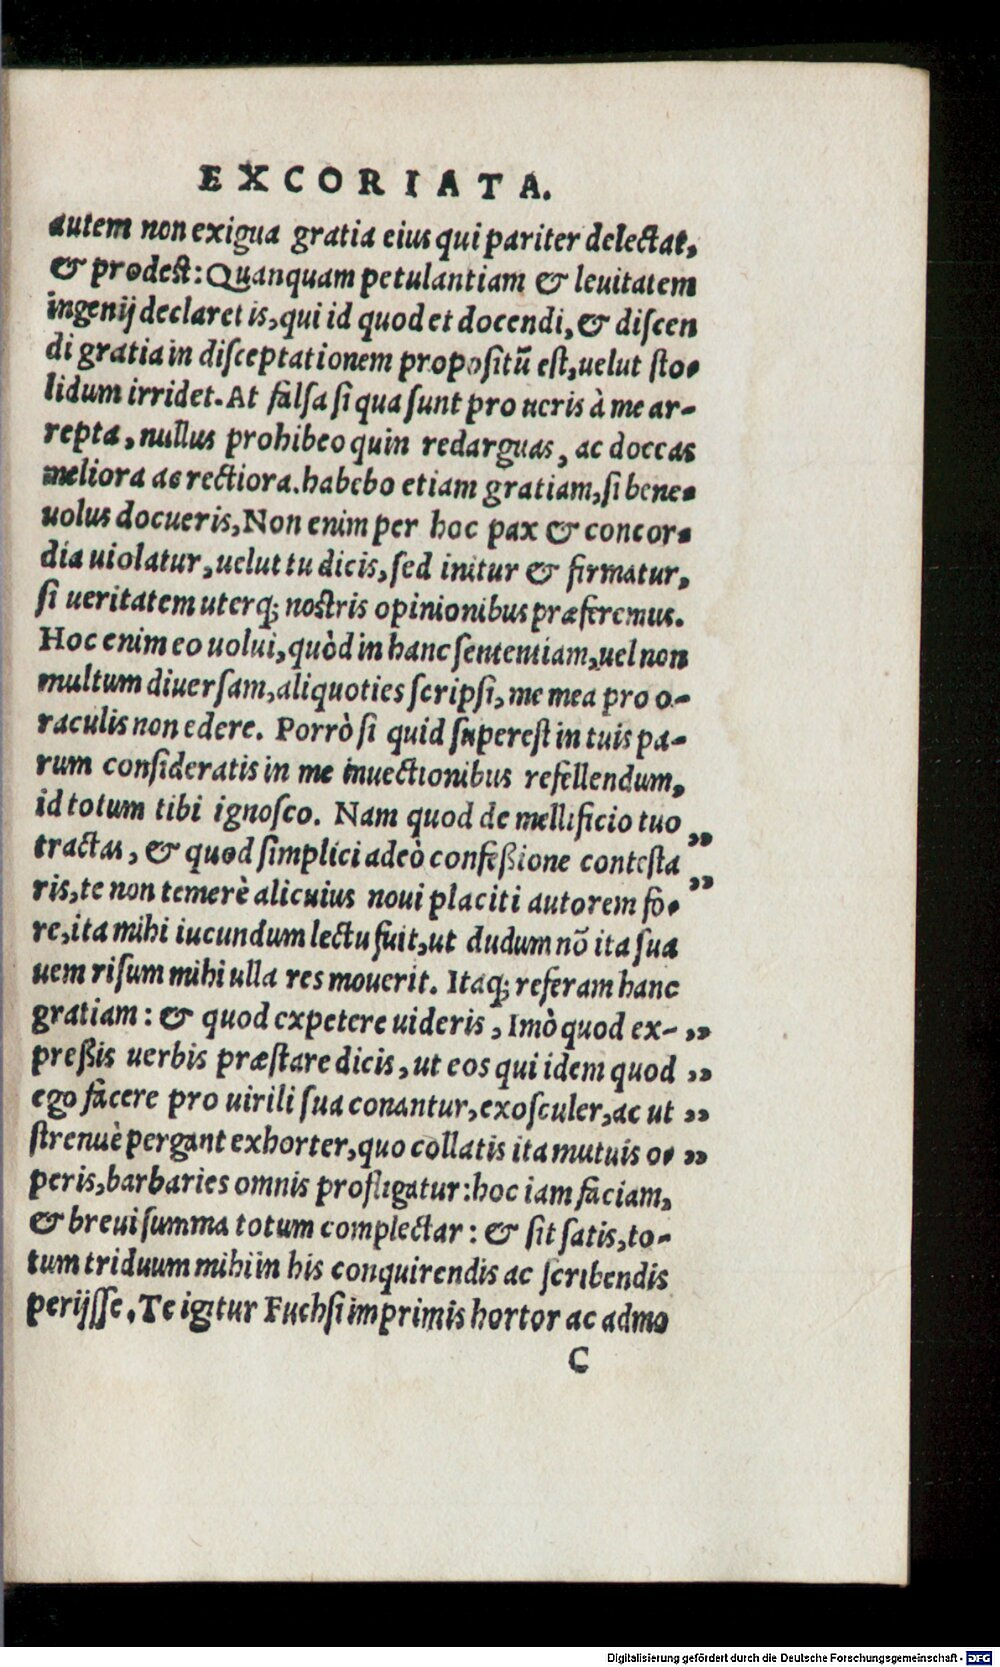 EXCORIATA.
autem non exigua gratia eius qui pariter delectat,
& prodest: Quanquam petulantiam & leuitatem
ingenij declaret is, qui id quod et docendi, & discen
di gratia in disceptationem propositū est, uelut sto-
lidum irridet. At falsa si qua sunt pro ueris à me ar-
repta, nullus prohibeo quin redarguas, ac doceas
meliora ac rectiora. habebo etiam gratiam, si bene-
uolus docueris, Non enim per hoc pax & concor-
dia uiolatur, uelut tu dicis, sed initur & firmatur,
si ueritatem uterq; nostris opinionibus præferemus.
Hoc enim eo uolui, quòd in hanc sententiam, uel non
multum diuersam, aliquoties scripsi, me mea pro o-
raculis non edere. Porrò si quid superest in tuis pa-
rum consideratis in me inuectionibus refellendum,
id totum tibi ignosco. Nam quod de mellificio tuo ,,
tractas, & quod simplici adeò confeßione contesta ,,
ris, te non temerè alicuius noui placiti autorem fo-
re, ita mihi iucundum lectu fuit, ut dudum nō ita sua
uem risum mihi ulla res mouerit. Itaq; referam hanc
gratiam: & quod expetere uideris, Imò quod ex- ,,
preßis uerbis præstare dicis, ut eos qui idem quod ,,
ego facere pro uirili sua conantur, exosculer, ac ut ,,
strenuè pergant exhorter, quo collatis ita mutuis o- ,,
peris, barbaries omnis profligatur: hoc iam faciam,
& breui summa totum complectar: & sit satis, to-
tum triduum mihi in his conquirendis ac scribendis
perijsse. Te igitur Fuchsi imprimis hortor ac admo
C
Digitalisierung gefördert durch die Deutsche Forschungsgemeinschaft - DFG